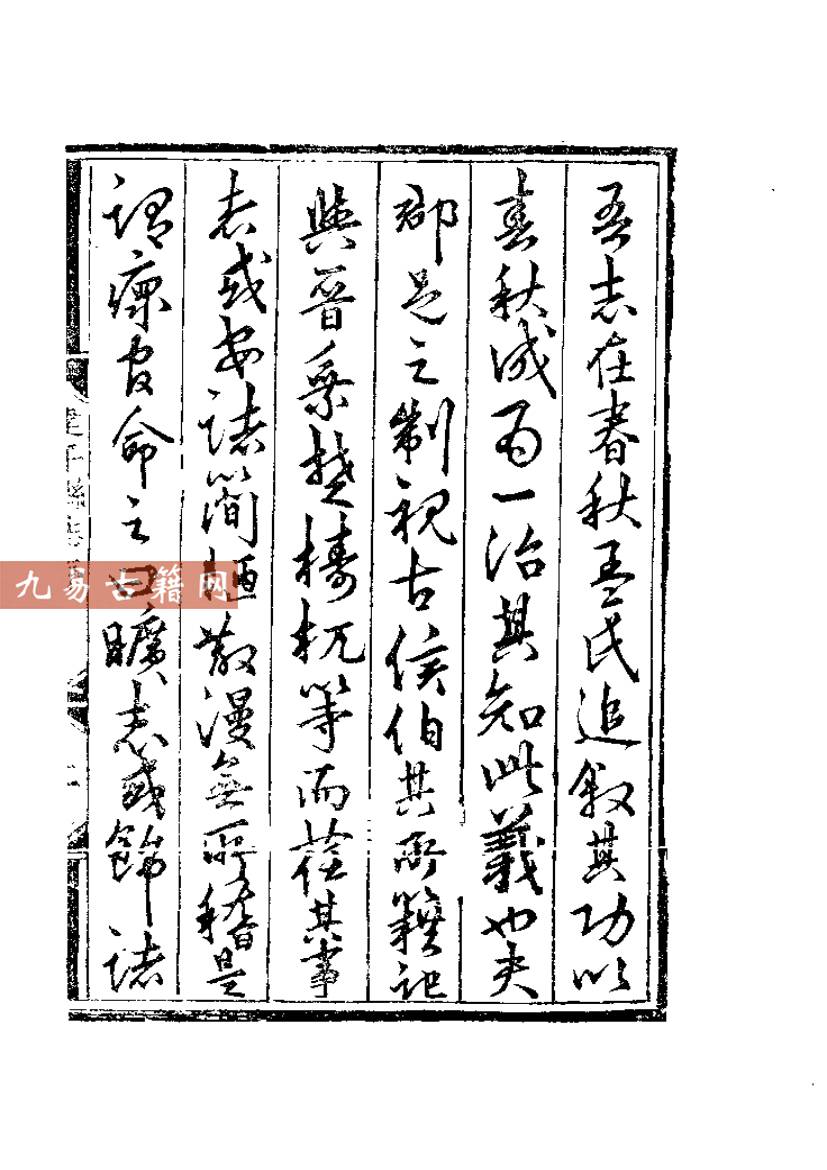 吾志在春秋孟氏追叙其功以
春秋成為一治其知此義也夫
郡邑之制視古侯伯其所籍記
與晉乘楚檮杌等而蒞其事
者或安諸簡陋散漫無所稽是
謂瘝官命之曰曠志或飾諸
建平縣志
九易古籍网